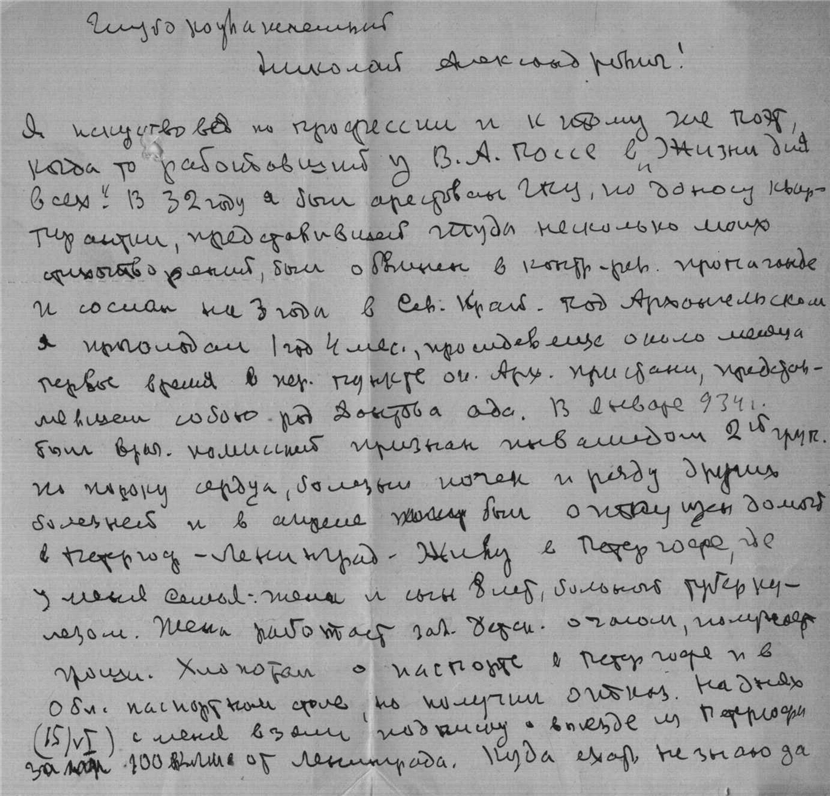 Глубокоуважаемый
Николай Александрович!
Я искусствовед по профессии и к тому же поэт,
когда то работавший у В. А. Поссе в „Жизни для
всех“. В 32 году я был арестован ГПУ, по доносу квар-
тирантки, представившей туда несколько моих
стихотворений, был обвинен в контр-рев. пропаганде
и сослан на 3 года в Сев. Край. Под Архангельском
я проголодал 1 год 4 мес., проведя еще около месяца
первое время в пер. пункте ок. Арх. пристани, представ-
лявшем собою род Дантова ада. В январе 934 г.
был врач. комиссией признан инвалидом 2ой груп.
по пороку сердца, болезни почек и ряду других
болезней и в апреле был отпущен домой
в Петергоф - Ленинград - Живу в Петергофе, где
у меня семья: жена и сын 8 лет, больной туберку-
лезом. Жена работает зав. детск. очагом, получает
гроши. Хлопотал о паспорте в Петергофе и в
Обл. паспортном столе, но получил отказ. На днях
(15/VI) с меня взяли подписку о выезде из Петергофа
за 100 килм. от Ленинграда. Куда ехать не знаю да